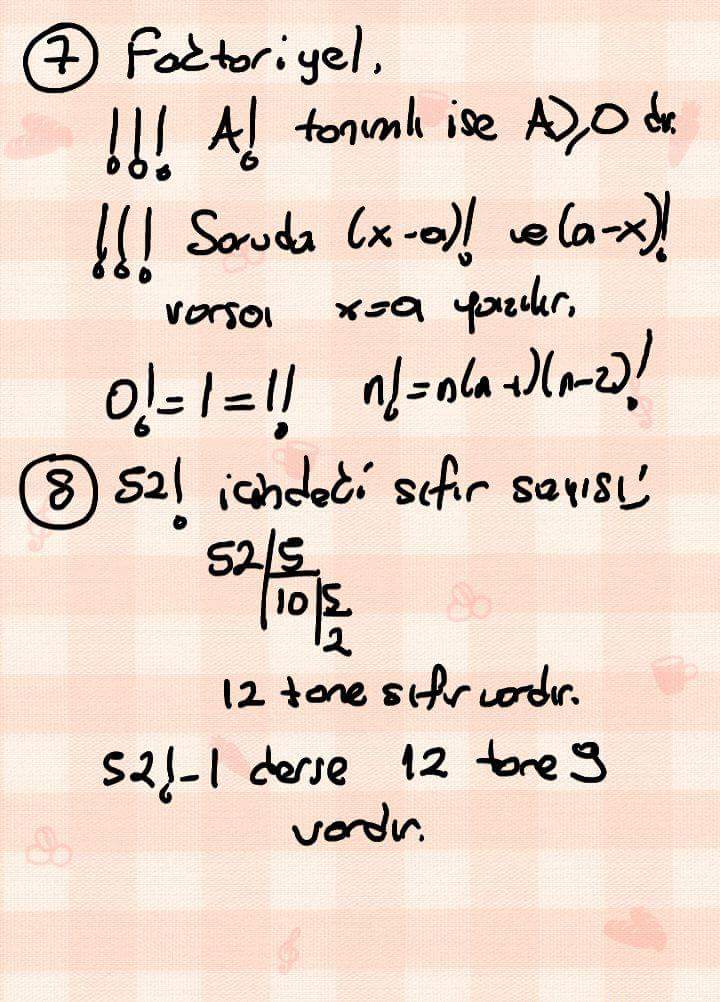 ⑦ Faktoriyel,
!!! A! tanımlı ise A≥0 dır.
!!! Soruda (x-a)! ve (a-x)!
varsa x=a yazılır.
0!=1=1! n!=n(n-1)(n-2)!
⑧ 52! içindeki sıfır sayısı
52 5
10 5
2
12 tane sıfır vardır.
52!-1 derse 12 tane 9
vardır.